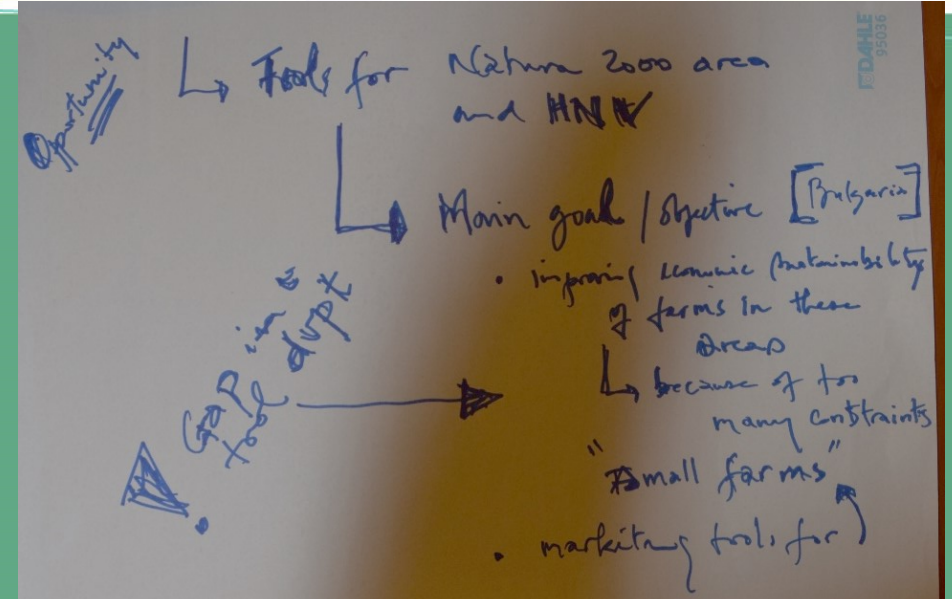 Opportunity
Tools for Natura 2000 area
and HNV
Main goal / objective [Bulgaria]
• improving economic sustainability
of farms in these
areas
because of too
many contstraints
"Small farms"
• markiting tools for
Gap in
tool dvpt
!
DAHLE
95036